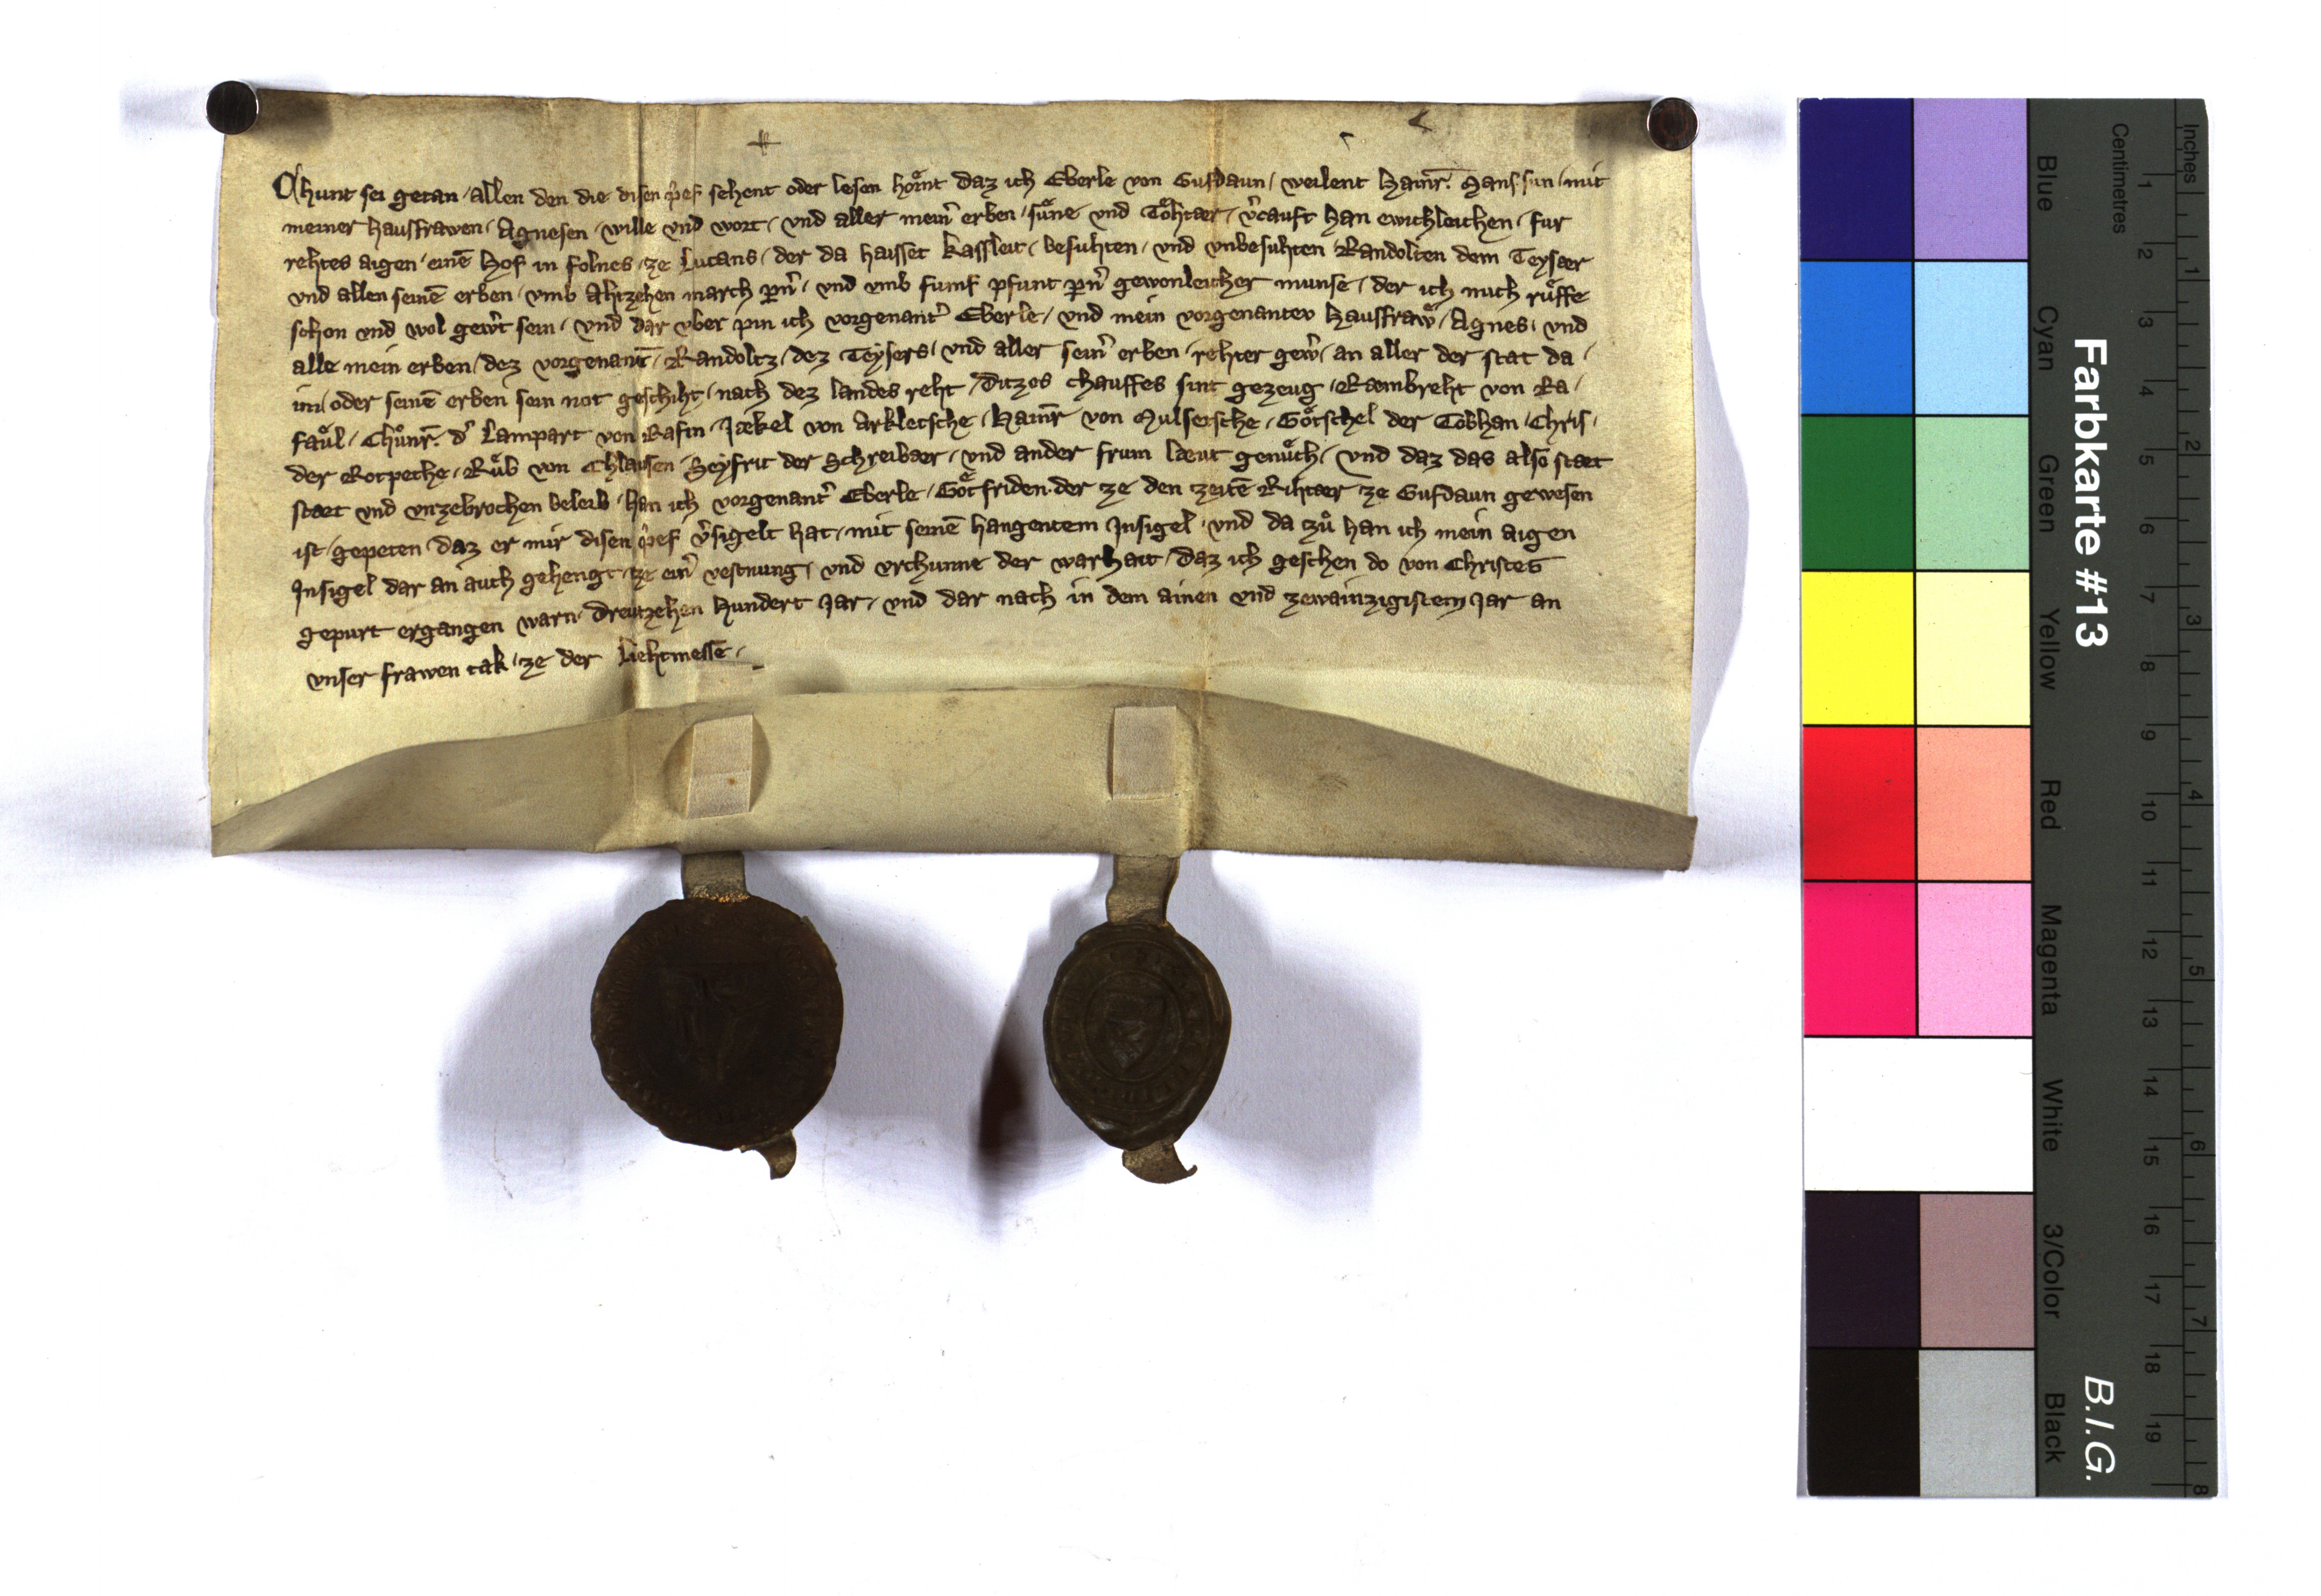 Chunt sei getan / allen den die disen p̂ef sehent oder lesen hoͤrnt daz ich Eberle von Gufdaun / weilent Hainr̄. Hans sun / mit
meiner hausfrawen / Agnesen / wille vnd wort / vnd aller mein̄ erben / suͤne vnd Toͤhtær / v̾cauft han ewichleichen / fur
rehtes aigen / einē Hof in folnes / ze Lucans / der da haisset kassleit / besuhten / vnd vnbesuhten Randolten dem Teysær
vnd allen seinē erben / vmb Ahtzehen march pn̄ / vnd vmb fumf pfunt pn̄ gewonleicher munse / der ich mich ruͤffe
schon vnd wol gew̾t sein / vnd dar vber pin ich vorgenant̾ Eberle / vnd mein vorgenantev hausfraw / Agnes / vnd
alle mein erben / dez vorgenant̄ / Randoltz / dez Teysers / vnd aller sein̾ erben / rehter gew̾ / an aller der stat da /
im / oder seinē erben sein not geschiht / nach dez landes reht / ditzes chauffes sint gezeug / Ræmbreht von Ra /
faͤul / Chuͦnr̄. d̾ Lampart von Rafin / Jækel von Arkletsche / Hainr̄ von Mulsetsche / Goͤtschel der Tobhan / Chris /
der Rotpeche / Ruͤb von Chlausen / Seyfrit der Schreibær / vnd ander frum læut genuͤch / vnd daz das also stæt
stæt vnd vnzebrochen beleib / han ich vorgenant̾ Eberle / Goͤtfriden der ze den zeitē Rihtær ze Gufdaun gewesen
ist / gepeten daz er mir disen p̂ef v̾sigelt hat / mit seinē hangentem Insigel / vnd da zuͦ han ich mein aigen
Insigel dar an auch gehengt / ze ein̾ vestnung / vnd vrchunne der warhait / daz ich geschen do von Christes
gepurt ergangen warn / dreutzehen hundert Jar / vnd dar nach in dem ainen vnd zewainzigistem Jar an
vnser frawen tak / ze der Liehtmesse /
Farbkarte #13
B.I.G.
Blue Cyan Green Yellow Red Magenta White 3/Color Black
Centimetres
1 2 3 4 5 6 7 8 9 10 11 12 13 14 15 16 17 18 19
Inches
1 2 3 4 5 6 7 8